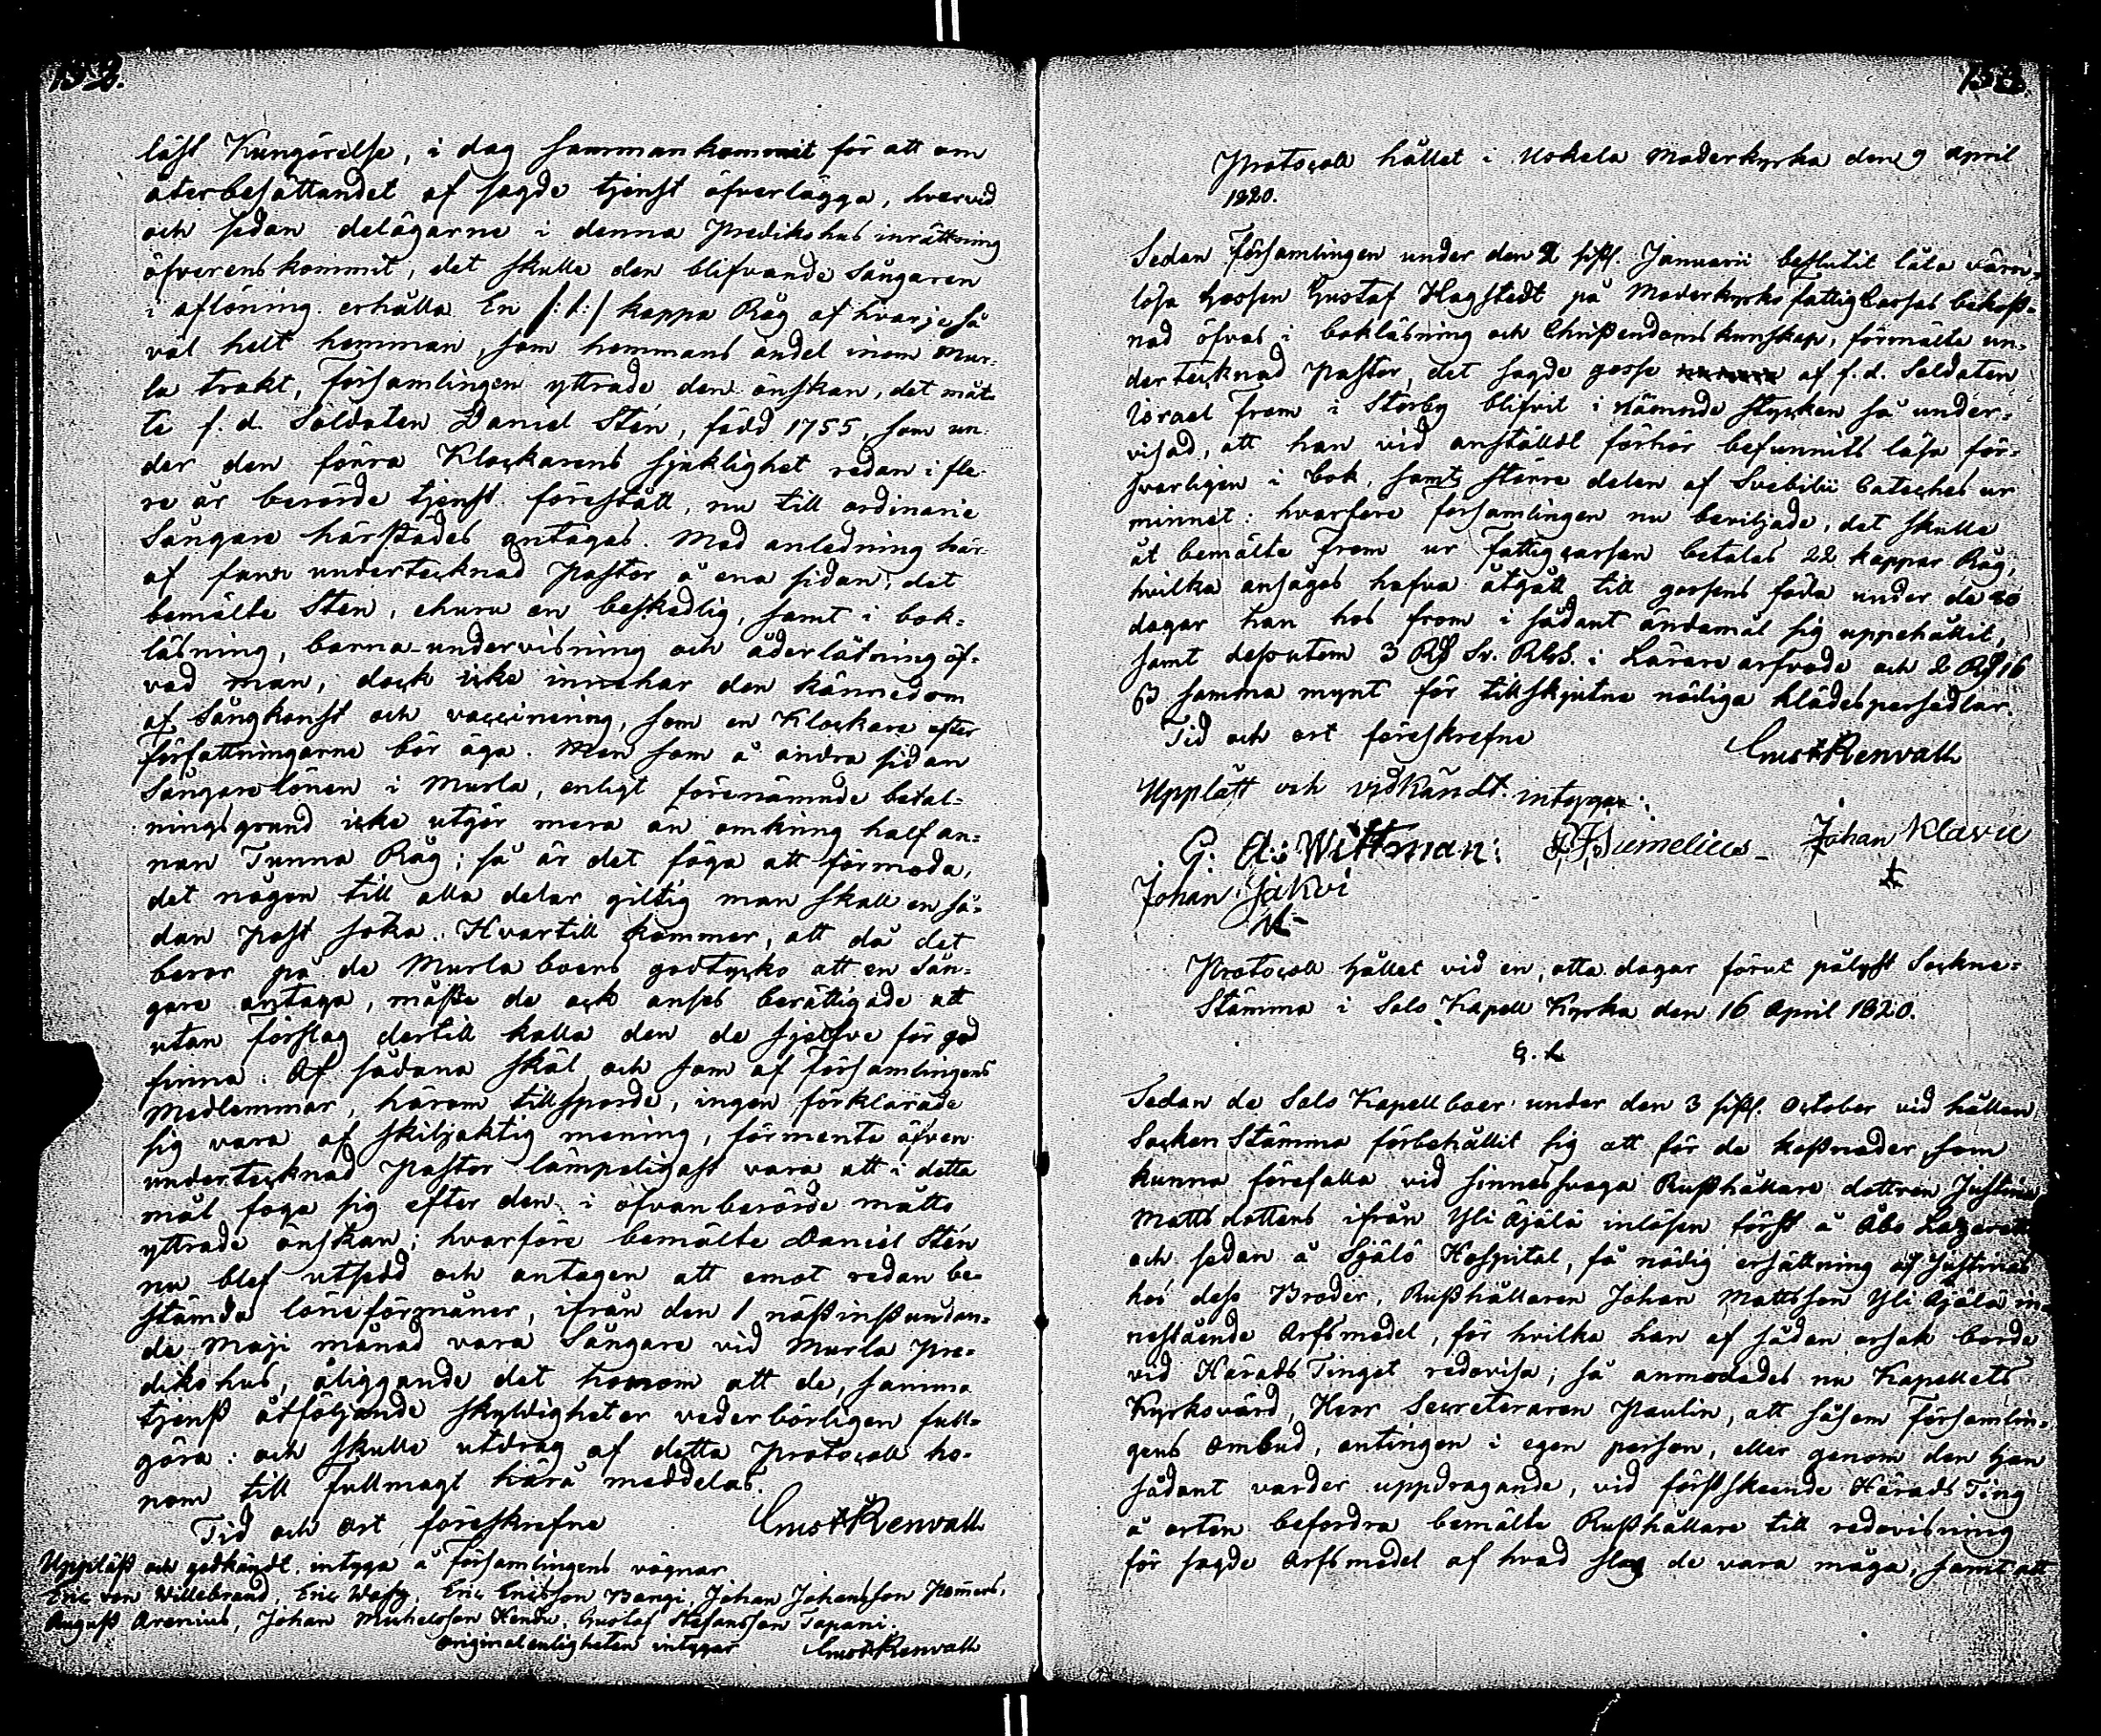 152.
läst Kungörelse, i dag sammankommit för att om
återbesättandet af sagde tjenst öfverlägga, hvarvid
och sedan delägarne i denna Predikohus inrättning
öfverenskommit, det skulle den blifvande Sångaren
i aflöning erhålla En /:1:/ kappa Råg af hvarje så
väl helt hemman, som hemmans andel inom Mur-
la trakt, Församlingen yttrade den önskan, det måt-
te f. d. Soldaten Daniel Stén, född 1755, som un-
der den förra Klockarens sjuklighet redan i fle-
re år berörde tjenst förestått, nu till ordinarie
Sångare härstädes antagas. Med anledning här-
af fann undertecknad Pastor å ena sidan, det
bemälte Sten, ehuru en beskedlig, samt i bok-
läsning, barna-undervisning och åderlåtning öf-
vad man, dock icke innehar den kännedom
af Sångkonst och vaccinering, som en Klockare efter
författningarne bör äga. Men som å andra sidan
Sångarelönen i Murla, enligt förenämnde betal-
ningsgrund icke utgör mera än omkring half an-
nan Tunna Råg; så är det föga att förmoda,
det någon till alla delar giltig man skall en så-
dan post söka. Hvartill kommer, att då det
beror på de Murla boers godtycko att en Sån-
gare antaga, måste de ock anses berättigade att
utan förslag dertill kalla den de sjelfve för god
finna. Af sådana skäl och som af Församlingens
Medlemmar, härom tillsporde, ingen förklarade
sig vara af skiljaktig mening, förmente äfven
undertecknad Pastor lämpeligast vara att i detta
mål foga sig efter den i ofvanberörde måtto
yttrade önskan; hvarföre bemälte Daniel Stén
nu blef utsedd och antagen att emot redan be-
stämda löneförmåner, ifrån den 1 nästinstundan-
de Maji månad vara Sångare vid Murla Pre-
dikohus, åliggande det honom att de, samma
tjenst åtföljande skyldigheter vederbörligen full-
göra: och skulle utdrag af detta Protocoll ho-
nom till Fullmagt härå meddelas.
Tid och Ort föreskrefne Gust Renvall
Uppläst och godkändt, intyga å Församlingens vägnar
Eric von Willebrand, Eric Erics son Bangi, Johan Johansson
August Arenius, Johan Michelsson, Gustaf Stefansson Tapani.
Originalenligheten intygar Gust Renvall
153.
Protocoll hållet i Uskela Moderkyrka den 9 April
1820.
Sedan Församlingen under den 2 sistl. Januarii beslutit låta värn-
lösa Gossen Gustaf Hagstedt på Moderkyrko fattigCassas bekost-
nad öfvas i bokläsning och Christendoms kunskap, förmälte un-
dertecknad Pastor, det sagde gosse af f. d. Soldaten
Israel From i Storby blifvit i nämnde stycken så under-
visad, att han vid anställdt förhör befunnits läsa för-
svarligen i bok, samt större delen af Svebilii Cateches ur
minnet: hvarföre församlingen nu beviljade, det skulle
åt bemälte From ur Fattigcassan betalas 22 kappar Råg,
hvilka ansåges hafva åtgått till gossens föda under de
dagar han hos From i sådant ändamål sig uppehållit,
samt dessutom 3 Rd Sv. RGS. i Lärare arfvode och 2 Rd 16
ß samma mynt för tillskjutne nödiga klädespersedlar.
Tid och ort föreskrefne
Gust Renvall
Upplätt och vidkändt. intyga:
G. A: Wittman: Johan Klavu
Johan Jakvi
Protocoll hållet vid en, otta dagar förut pålyst Sockne-
Stämma i Salo Kapell Kyrka den 16 April 1820.
§. 1.
Sedan de Salo Kapellboer under den 3 sistl. October vid hållen
Socken Stämma förbehållit sig att för de kostnader, som
kunna förefalla vid sinnessvaga Rusthållare dottren Justina
Mattsdotters ifrån Yli Äjälä inlösen först å Åbo Lazarett
och sedan å Själö Hospital, få nödig ersättning af Justinas
hos dess Broder, Rusthållaren Johan Mattsson Yli Äjälä in-
nestående Arfsmedel, för hvilka han af sådan orsak borde
vid Härads Tinget redovisa; så anmodades nu Kapellets
Kyrkovärd, Herr Secreteraren Paulin, att såsom Församlin-
gens Ombud, antingen i egen person, eller genom den han
sådant varder uppdragande, vid förstskeende Härads Ting
å orten befordra bemälte Rusthållare till redovisning
för sagde Arfsmedel af hvad slag de vara måga, samt att